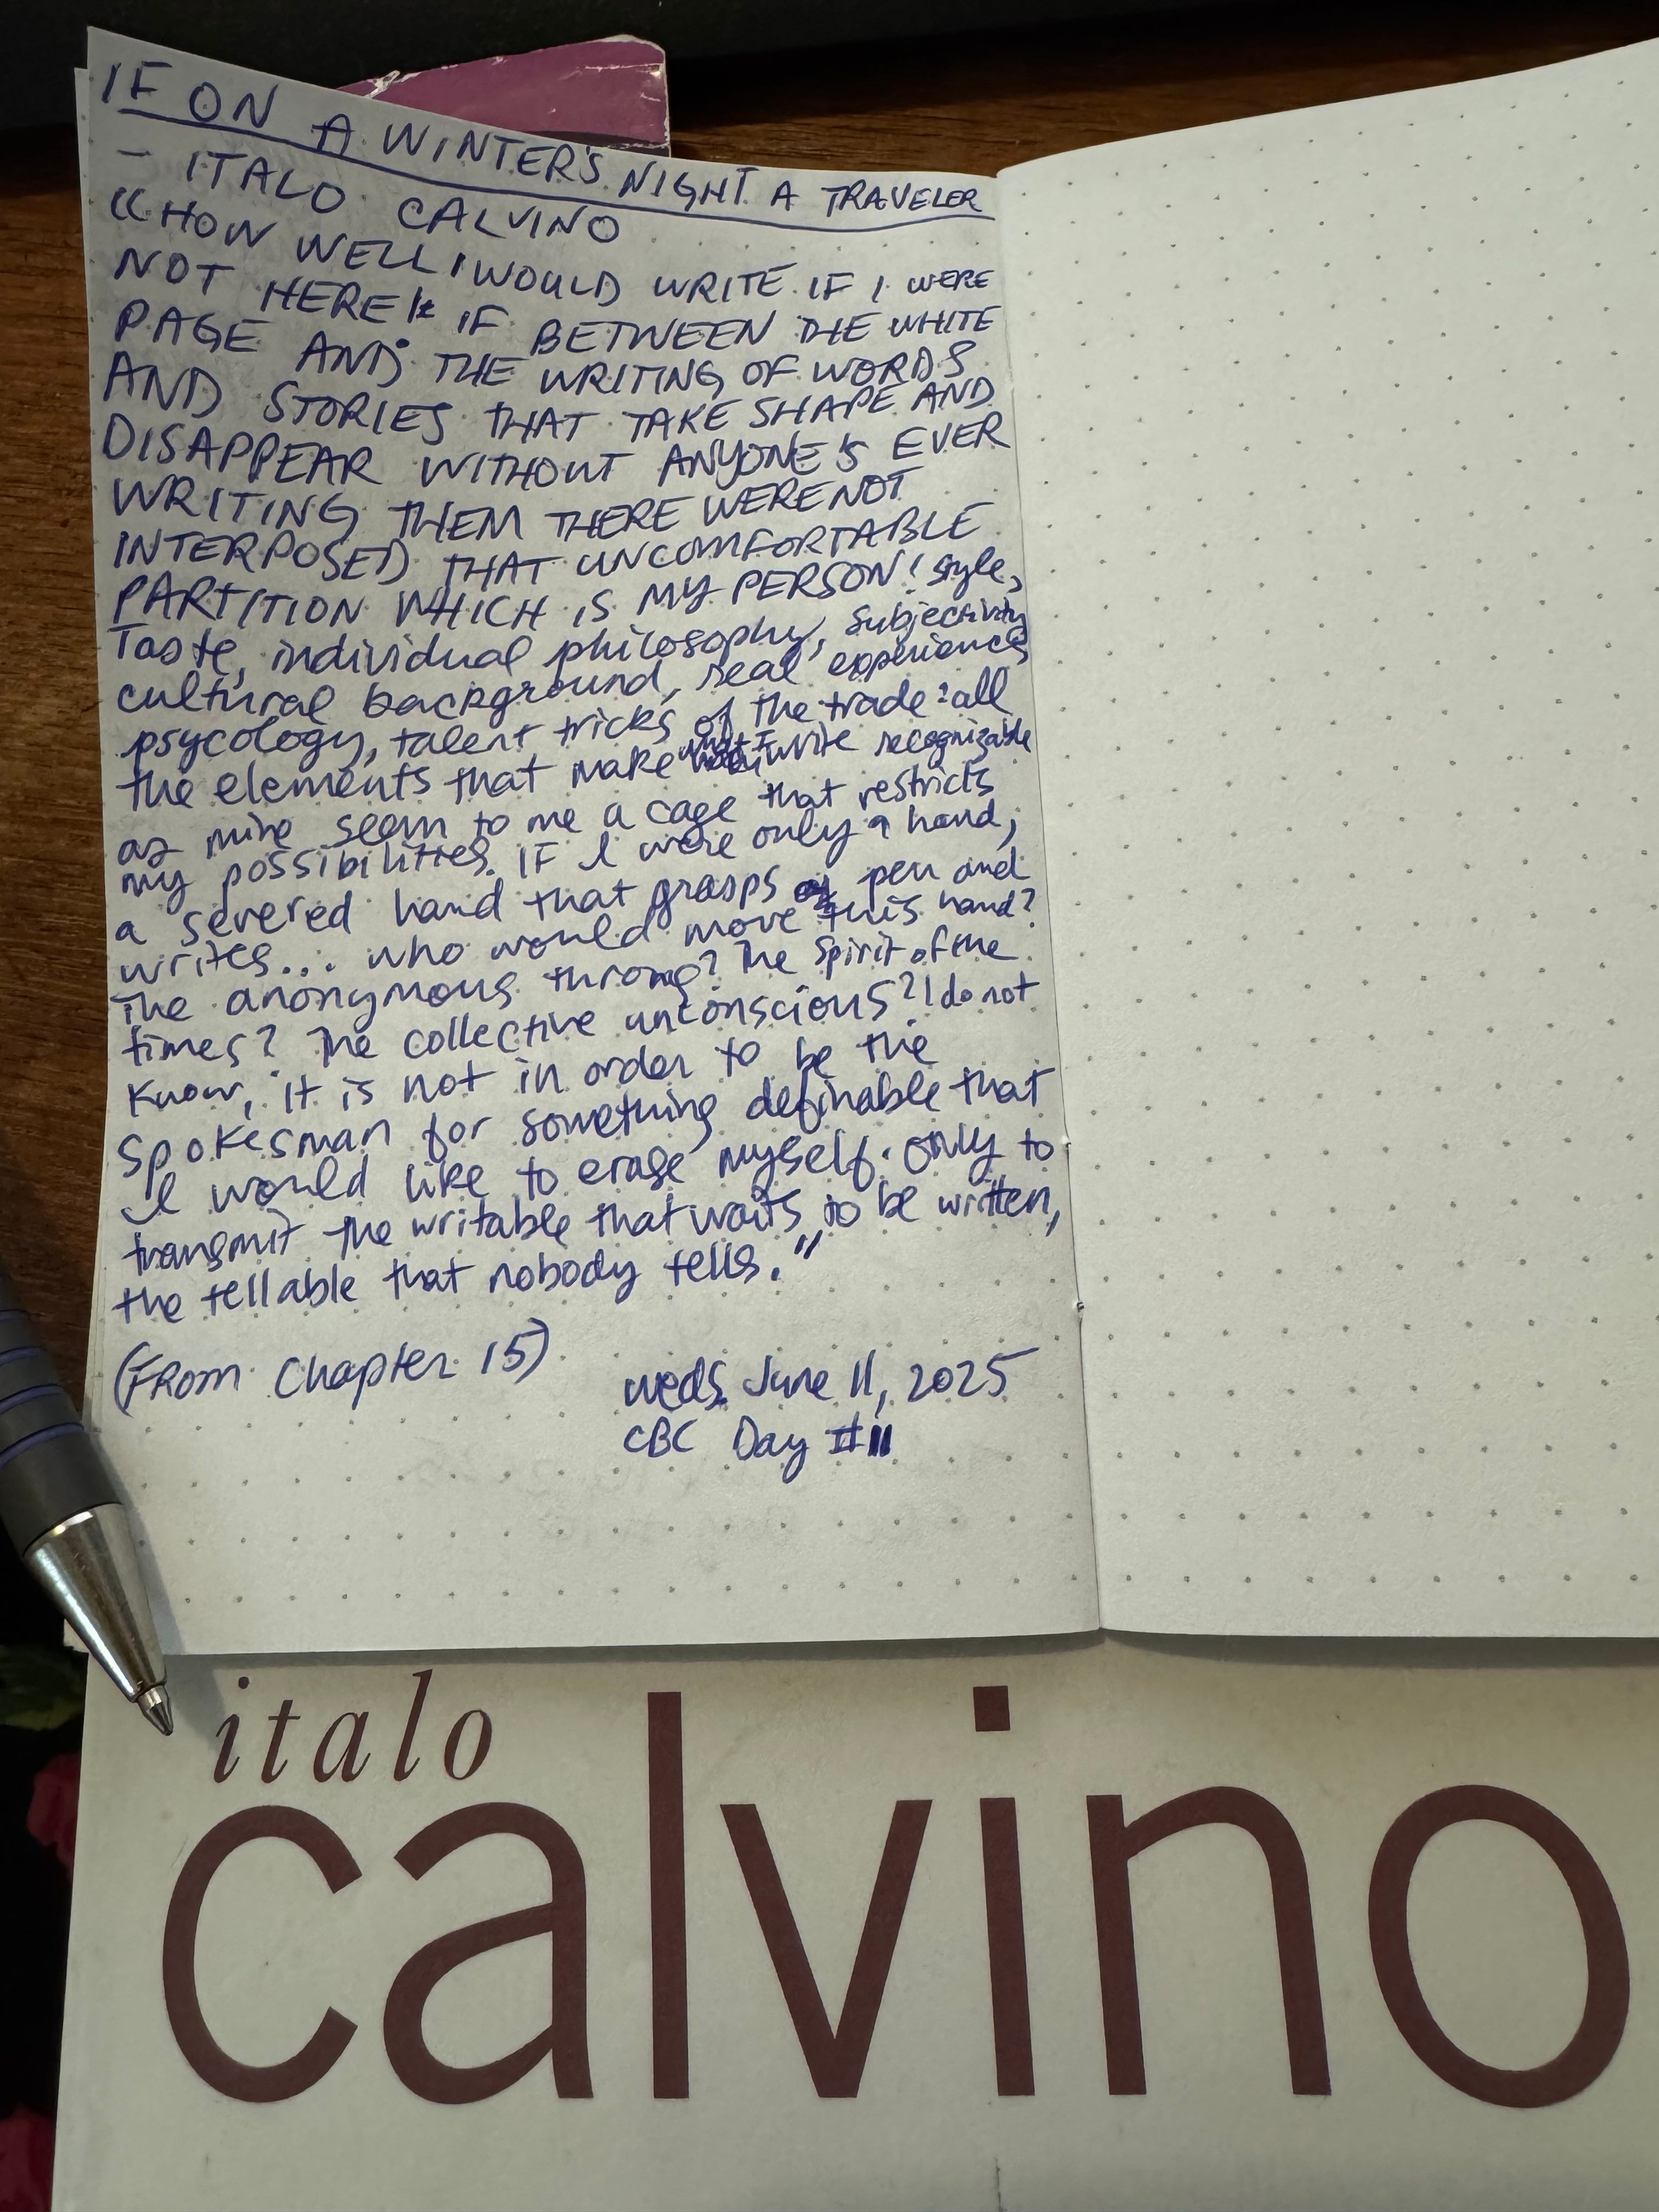 IF ON A WINTER'S NIGHT A TRAVELER
- ITALO CALVINO
"HOW WELL I WOULD WRITE IF I WERE
NOT HERE! IF BETWEEN THE WHITE
PAGE AND THE WRITING OF WORDS
AND STORIES THAT TAKE SHAPE AND
DISAPPEAR WITHOUT ANYONE'S EVER
WRITING THEM THERE WERE NOT
INTERPOSED THAT UNCOMFORTABLE
PARTITION WHICH IS MY PERSON! Style,
Taste, individual philosophy, subjectivity
cultural background, real experiences
psycology, talent, tricks of the trade: all
the elements that make what I write recognizable
as mine seem to me a cage that restricts
my possibilities. IF I were only a hand,
a severed hand that grasps a pen and
writes... who would move this hand?
The anonymous throng? The spirit of the
times? The collective unconscious? I do not
know, it is not in order to be the
spokesman for something definable that
I would like to erase myself. only to
transmit the writable that waits to be written,
the tellable that nobody tells."
(FROM Chapter 15)
weds. June 11, 2025
CBC Day #11
italo
calvino